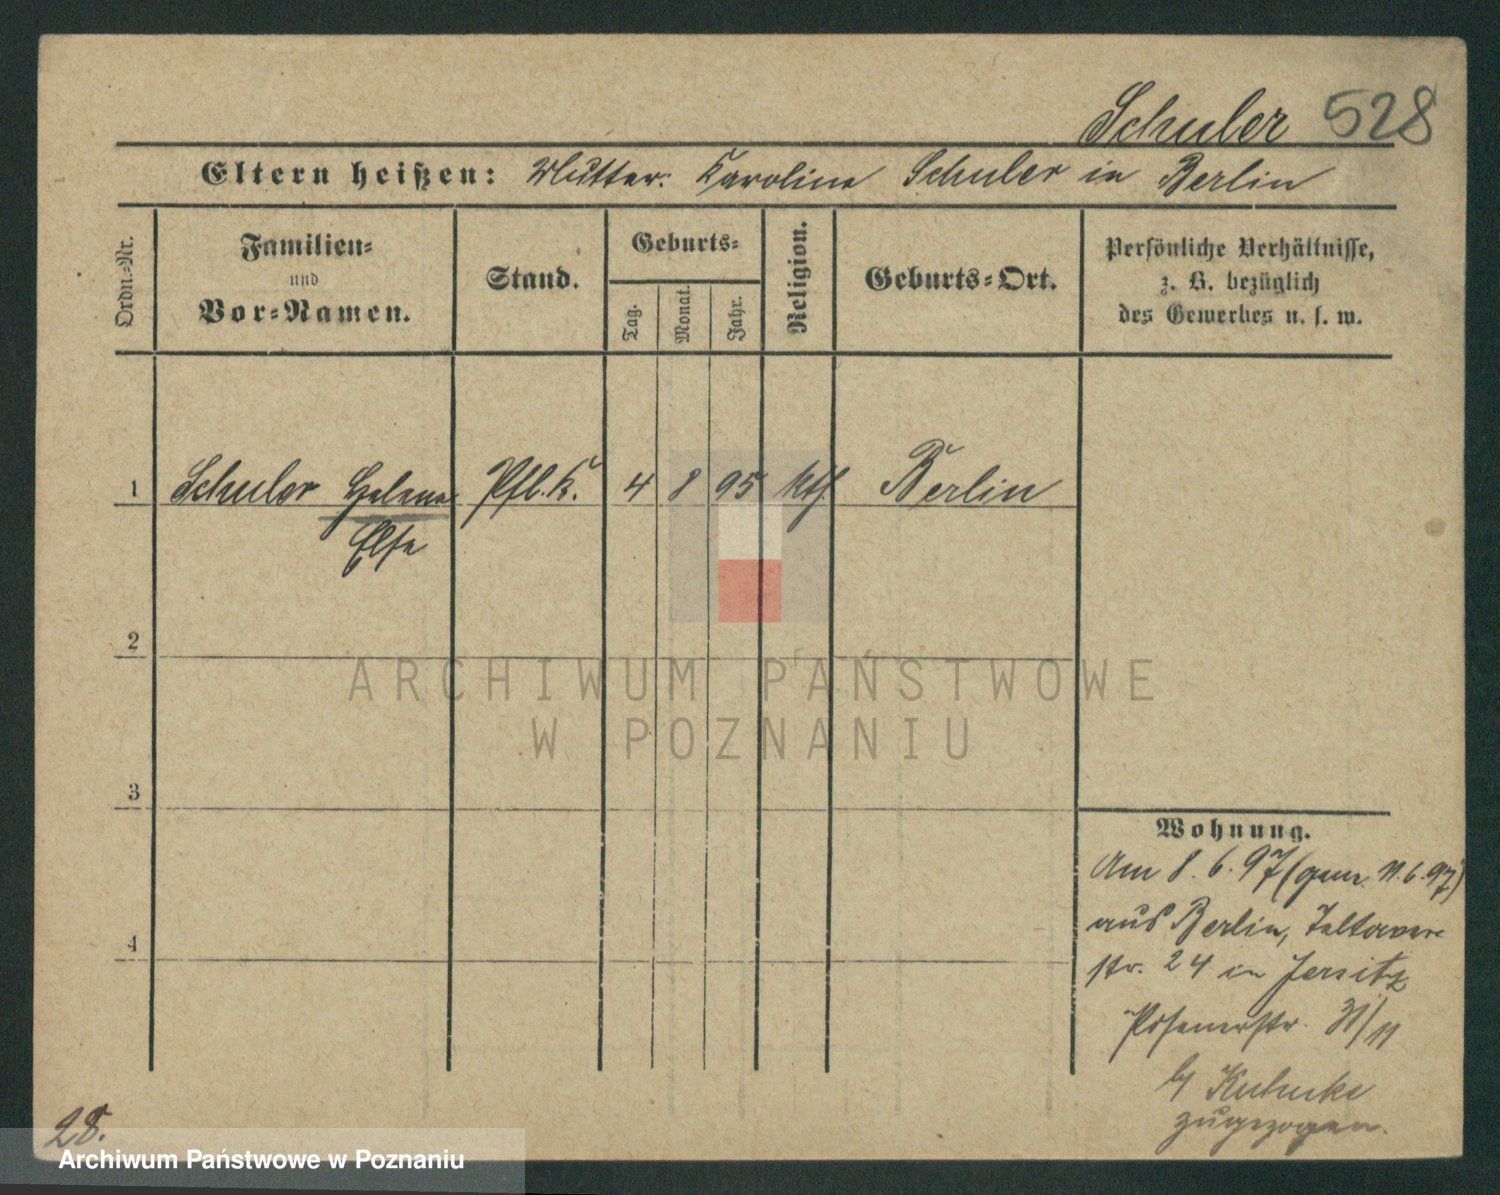 Schuler 528
Eltern heißen: Mutter: Karoline Schuler in Berlin
Ordn.-Nr.
Familien-
und
Vor-Namen.
Stand.
Geburts-
Tag.
Monat.
Jahr.
Religion.
Geburts-Ort.
Persönliche Verhältnisse,
z. B. bezüglich
des Gewerbes u. s. w.
1 Schuler Helene Pfl. K. 4 8 95 kth Berlin
Else
2
3
4
ARCHIWUM PAŃSTWOWE
W POZNANIU
Wohnung.
Am 8. 6. 97 (gem. 11.6.97)
aus Berlin, Teltower-
str. 24 in Jersitz
Posenerstr. 31/11
b/ Kuhnke
zugezogen.
28.
Archiwum Państwowe w Poznaniu